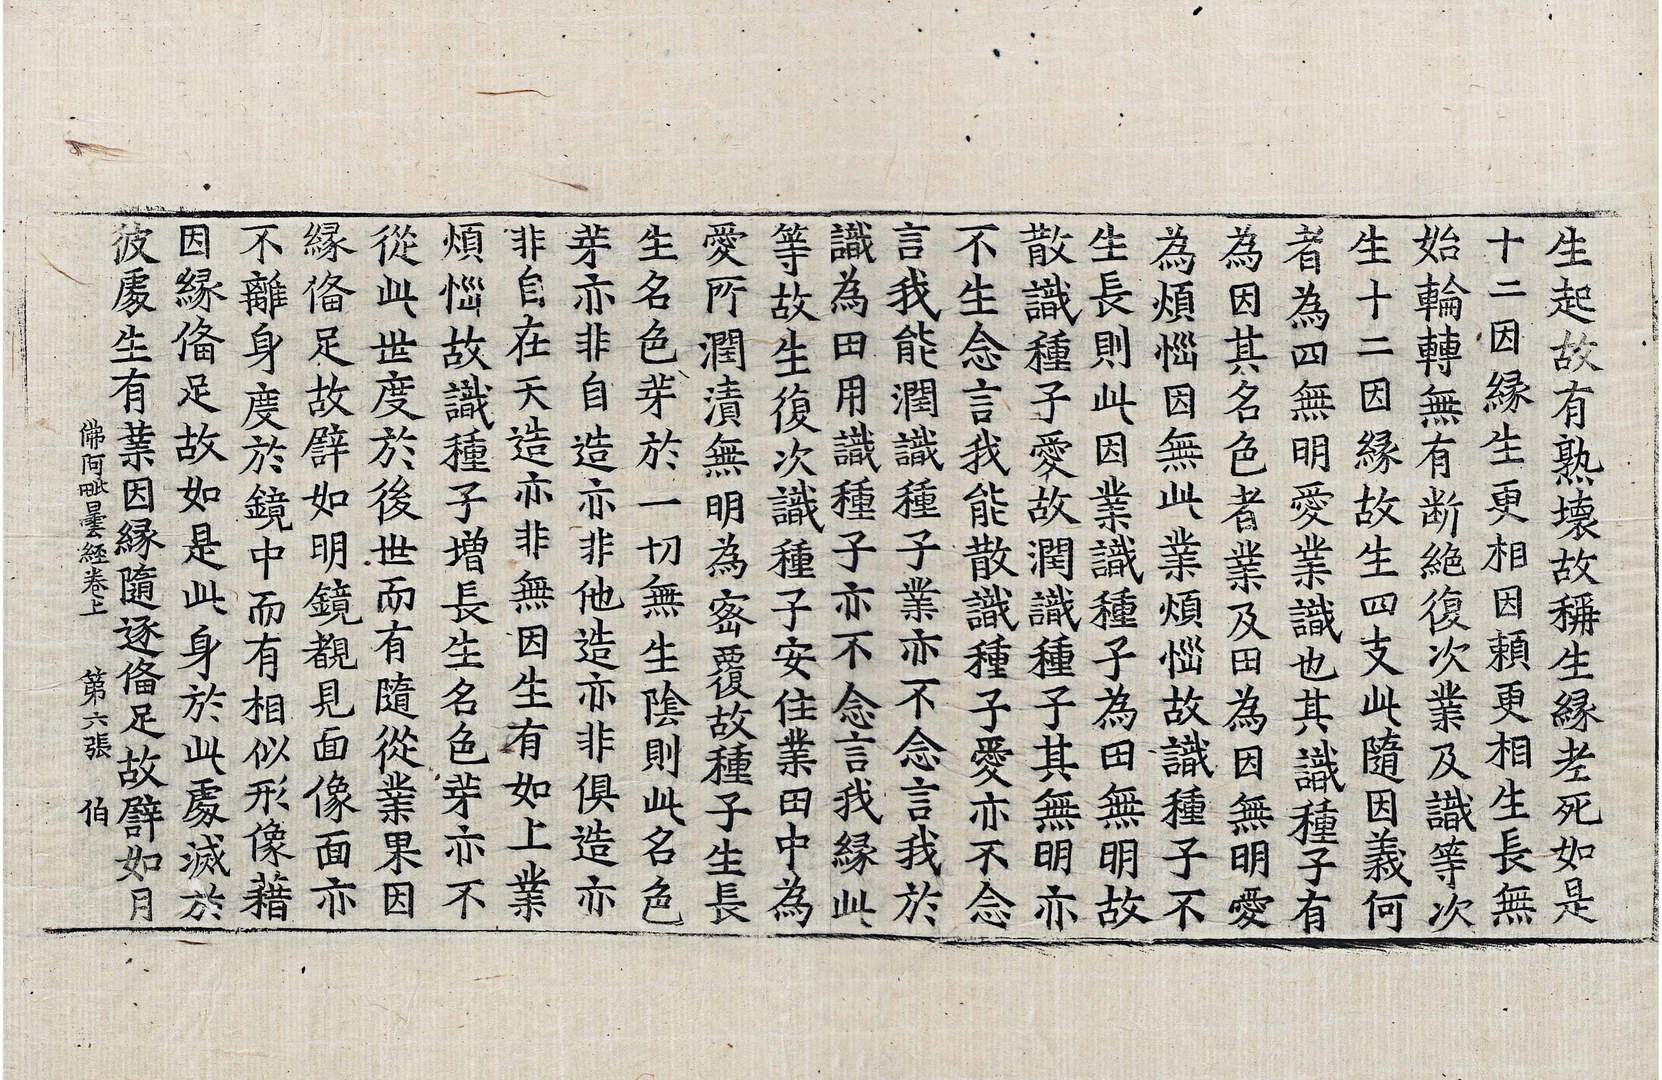 生起故有熟壊故稱生縁老死如是
十二因縁生更相因頼更相生長無
始輪轉無有断絶復次業及識等次
生十二因縁故生四支此隨因義何
者為四無明愛業識也其識種子有
為因其名色者業及田為因無明愛
為煩惱因無此業煩惱故識種子不
生長則此因業識種子為田無明故
散識種子愛故潤識種子其無明亦
不生念言我能散識種子愛亦不念
言我能潤識種子業亦不念言我於
識為田用識種子亦不念言我縁此
等故生復次識種子安住業田中為
愛所潤漬無明為宻覆故種子生長
生名色芽於一切無生陰則此名色
芽亦非自造亦非他造亦非俱造亦
非自在天造亦非無因生有如上業
煩惱故識種子増長生名色芽亦不
從此世度於後世而有隨從業果因
縁俻足故譬如明鏡覩見面像面亦
不離身度於鏡中而有相似形像藉
因縁俻足故如是此身於此處滅於
彼處生有業因縁隨逐俻足故譬如月
佛阿毗曇經卷上 第六張 伯